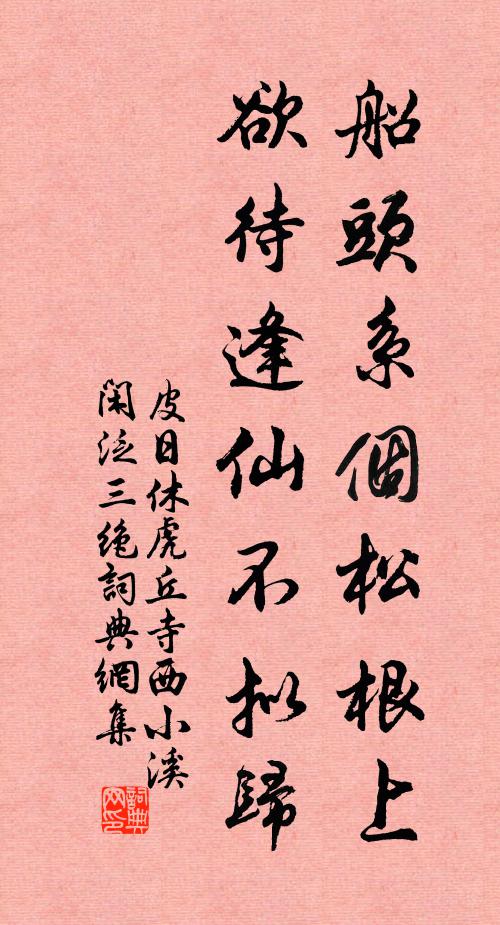 船頭系個松根上
欲待逢仙不擬歸
皮日休虎丘寺西小溪
閑泛三絶詞典網集
詞典网印